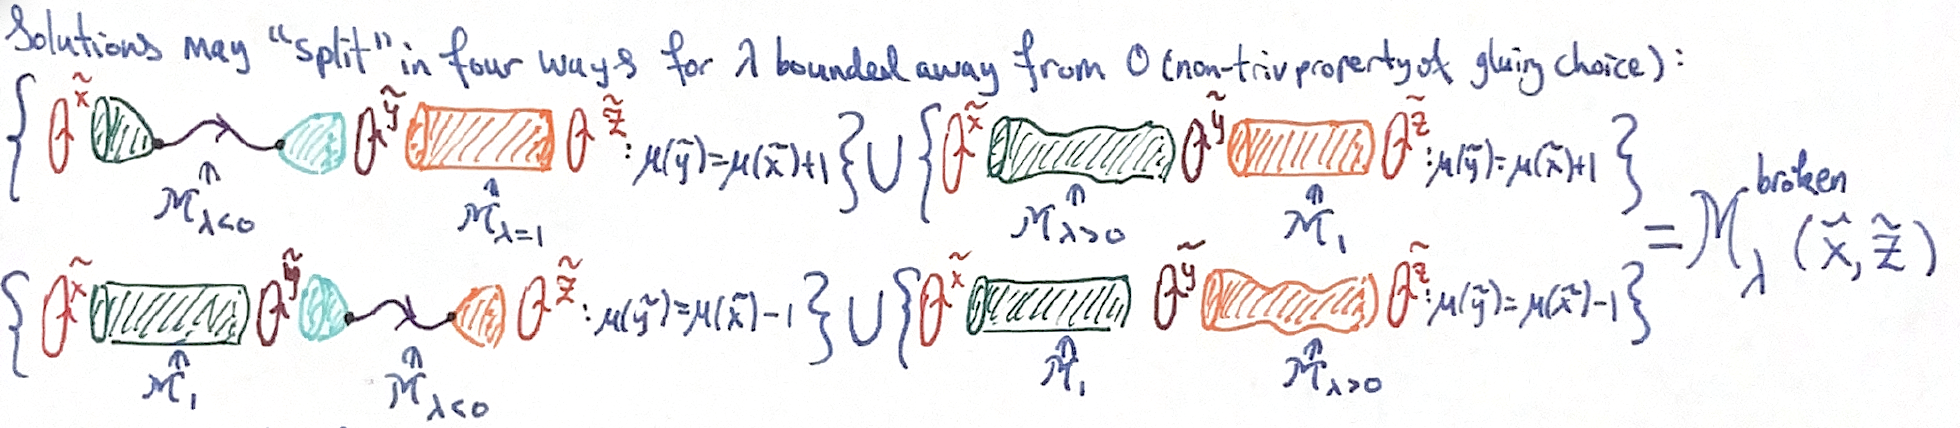 Solutions may "split" in four ways for λ bounded away from 0 (non-triv property of gluing choice):
{ x̃ ỹ z̃ : μ(ỹ)=μ(x̃)+1 } ∪ { x̃ ỹ z̃ : μ(ỹ)=μ(x̃)+1 }
↑ M_{λ<0} ↑ M_{λ=1} ↑ M_{λ>0} ↑ M_1
= M_λ^{broken} (x̃, z̃)
{ x̃ ỹ z̃ : μ(ỹ)=μ(x̃)-1 } ∪ { x̃ ỹ z̃ : μ(ỹ)=μ(x̃)-1 }
↑ M_1 ↑ M_{λ<0} ↑ M_1 ↑ M_{λ>0}